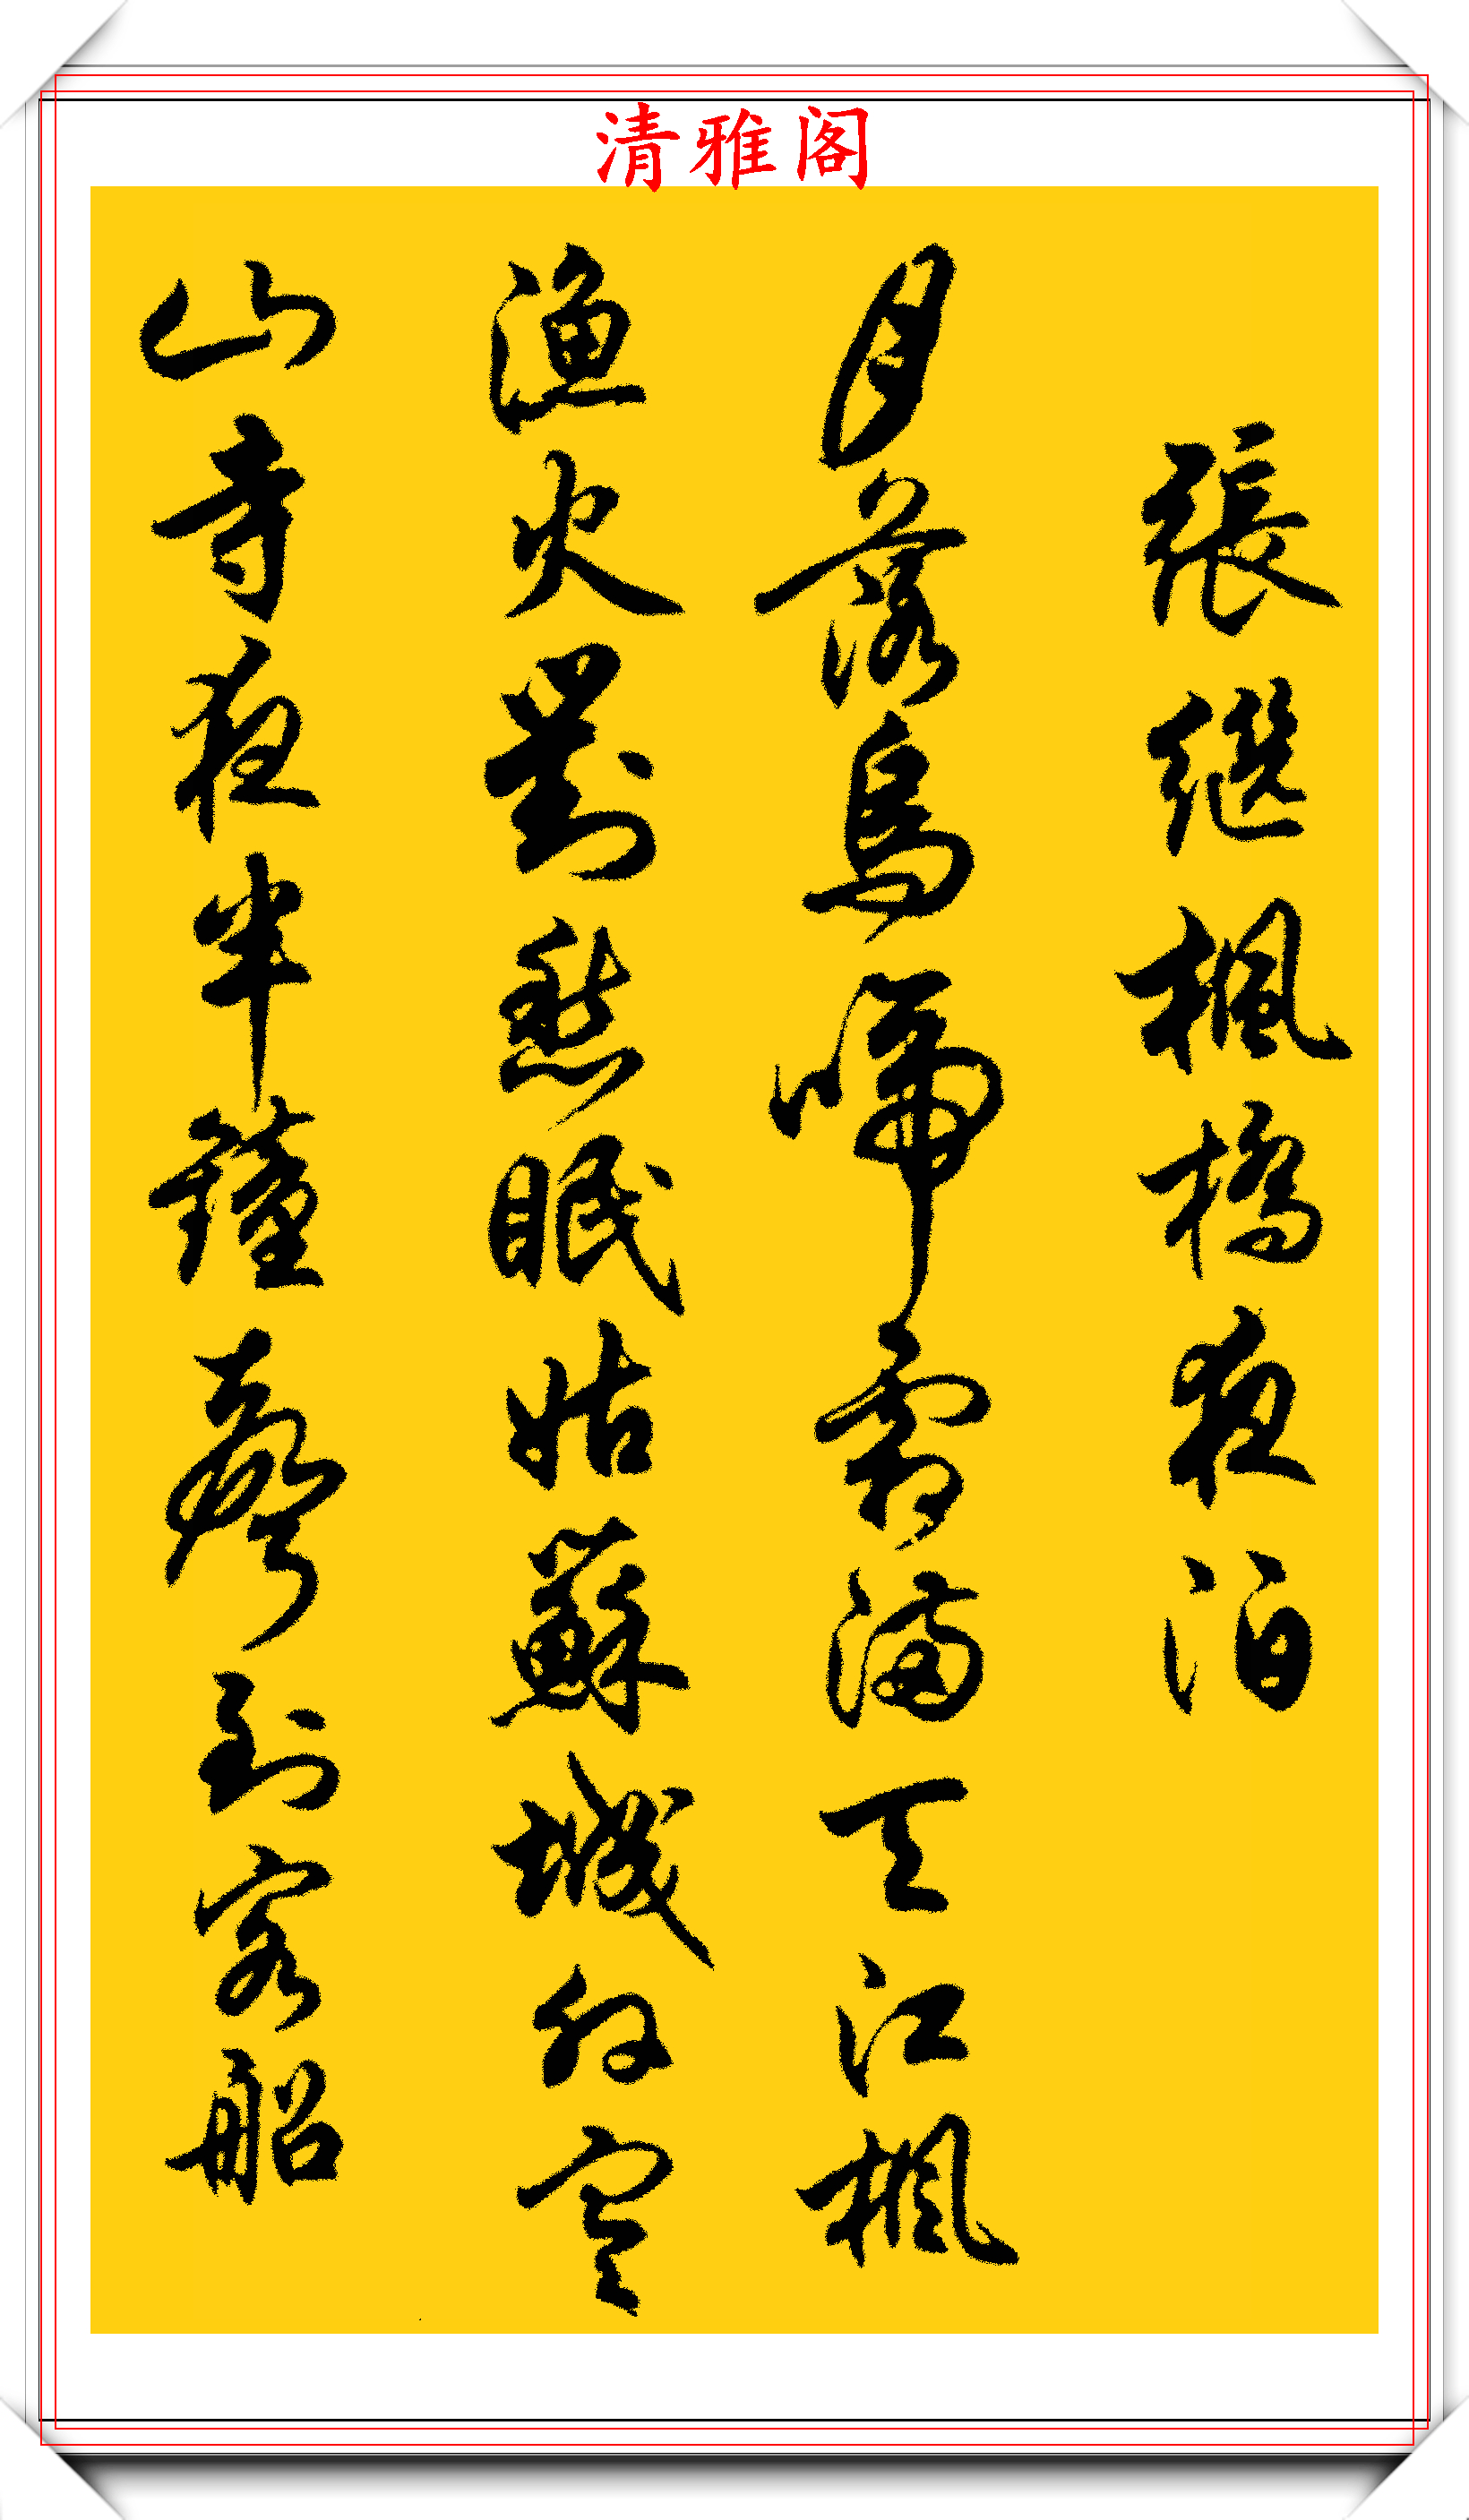 清雅阁
張継楓橋夜泊
月落烏啼霜滿天江楓
漁火對愁眠姑蘇城外寒
山寺夜半鐘聲到客船